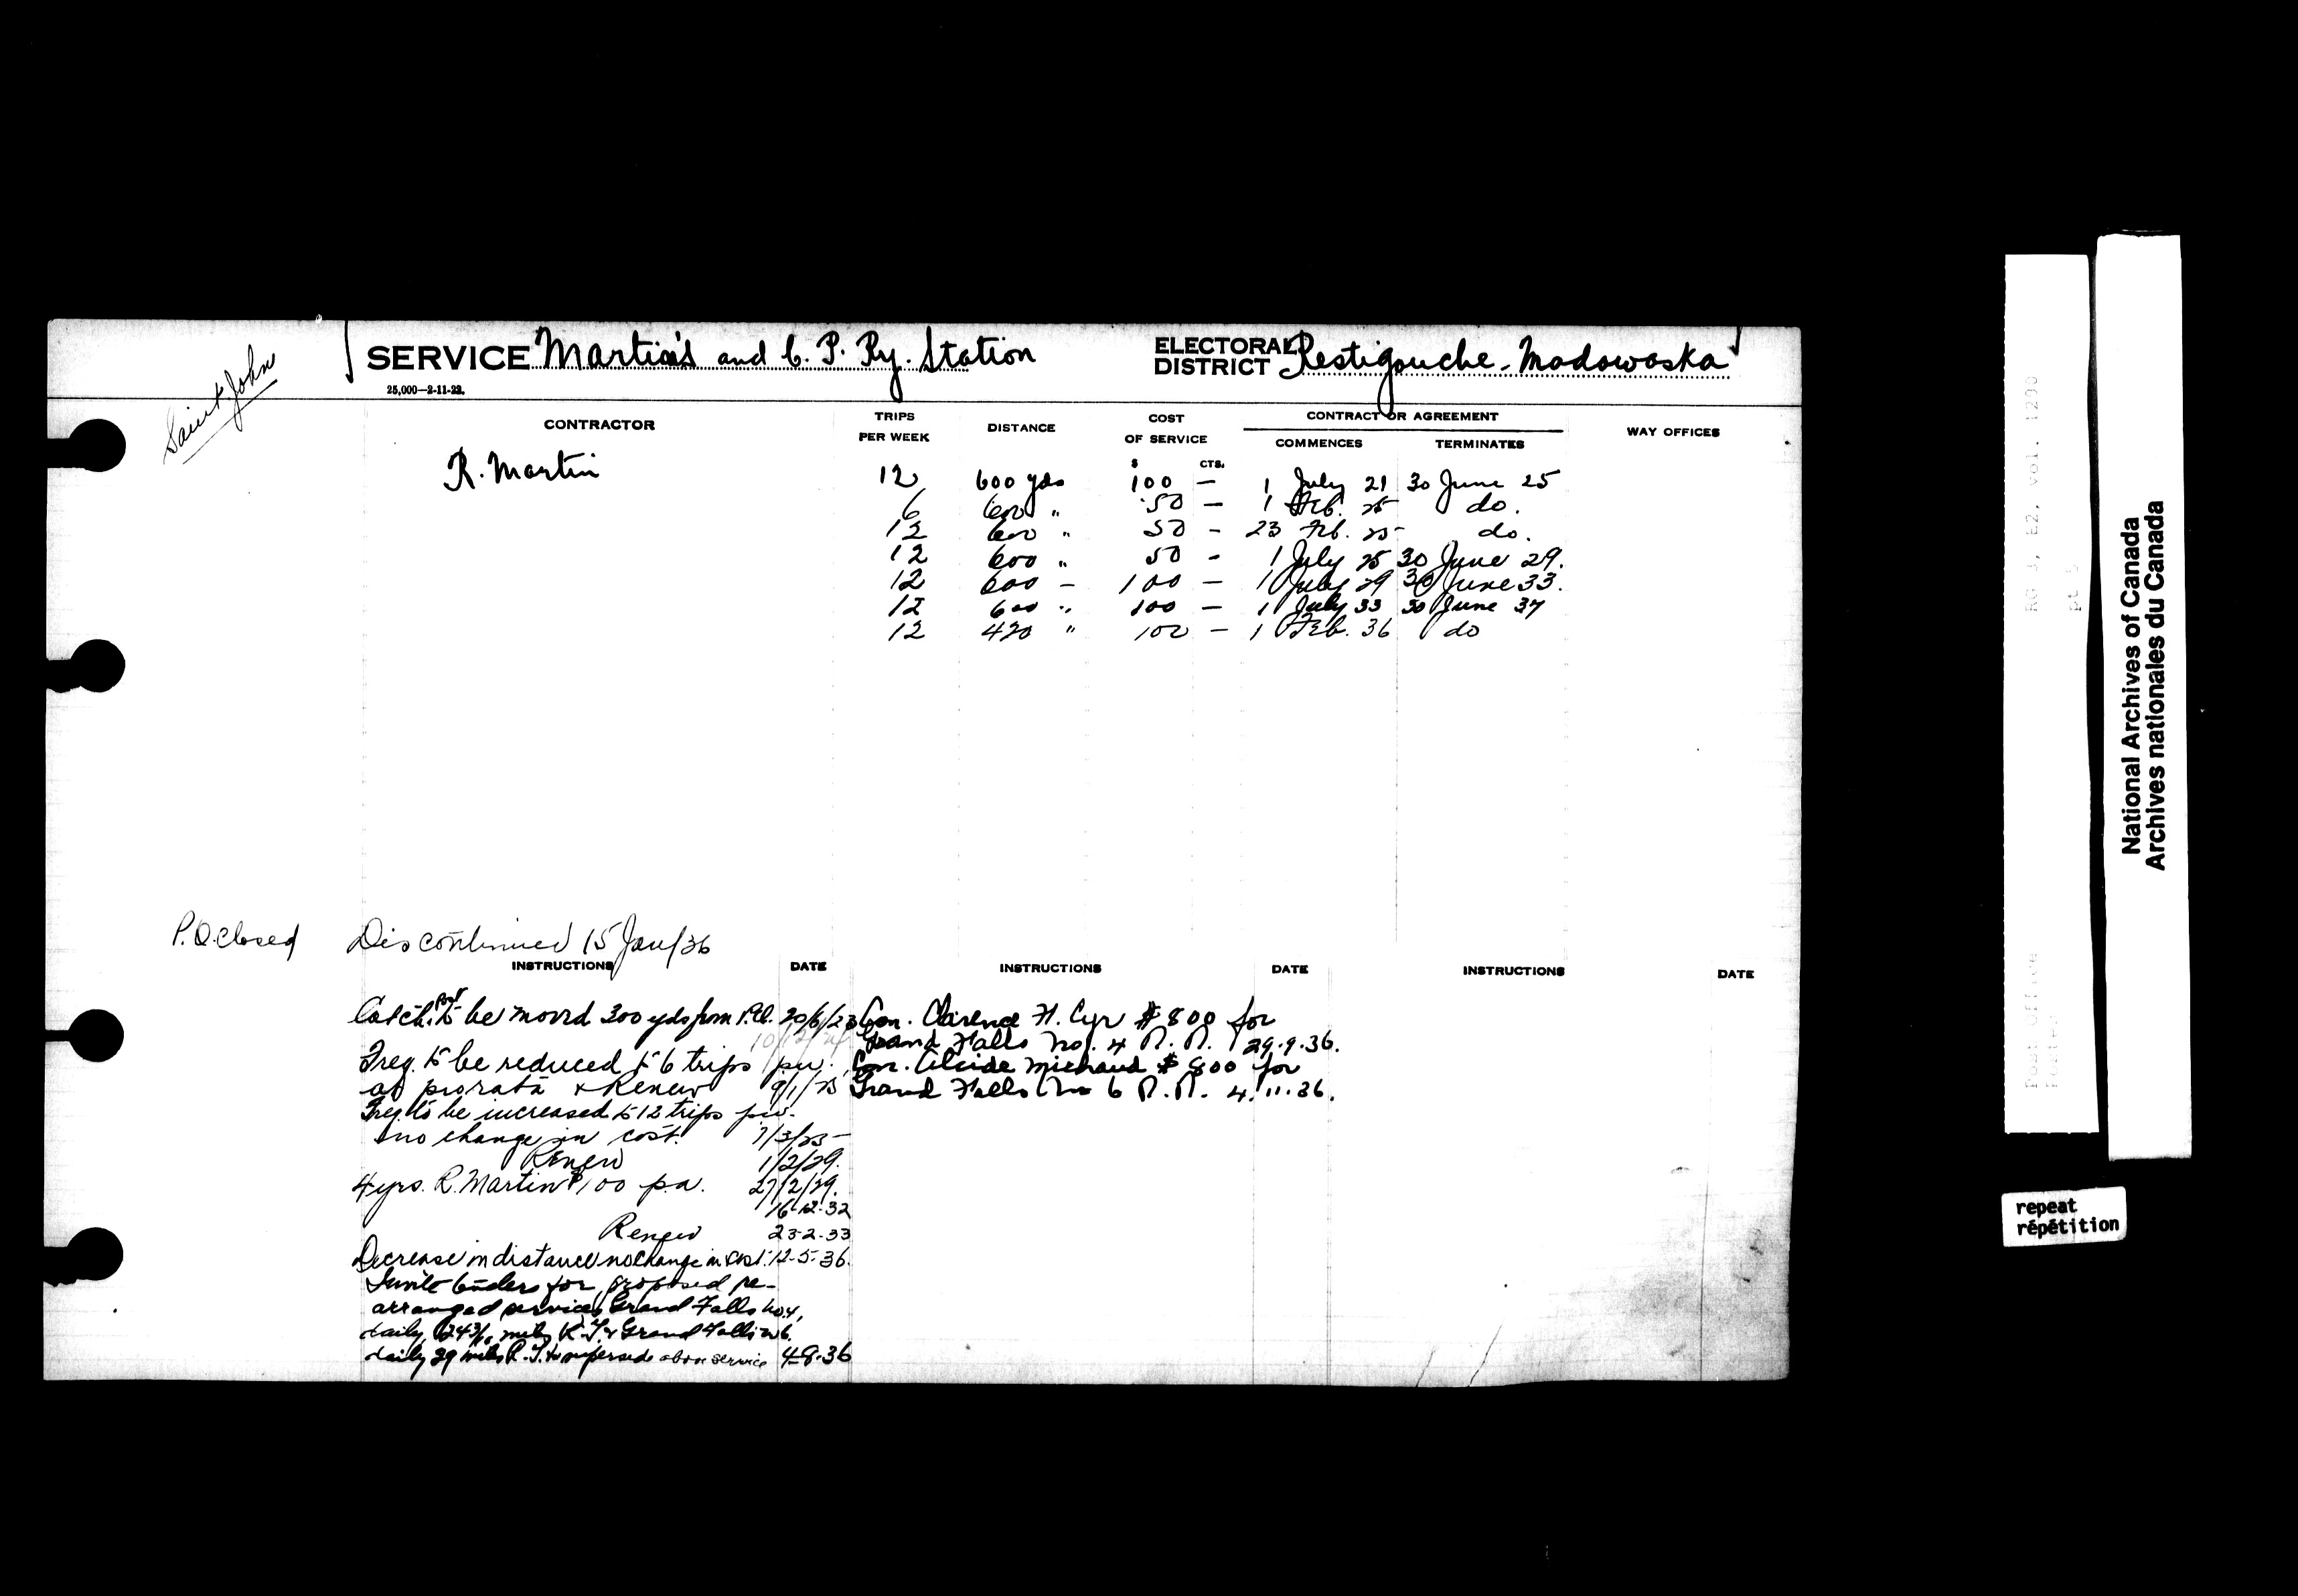 Saint John
SERVICE Martin's and C. P. Ry. Station ELECTORAL DISTRICT Restigouche-Madawaska
25,000—2-11-22.
CONTRACTOR TRIPS PER WEEK DISTANCE COST OF SERVICE CONTRACT OR AGREEMENT COMMENCES TERMINATES WAY OFFICES
$ CTS.
R. Martin 12 600 yds 100 — 1 July 21 30 June 25
6 600 " 50 — 1 Feb. 25 do.
12 600 " 50 - 23 Feb. 25 do.
12 600 " 50 - 1 July 25 30 June 29.
12 600 - 100 - 1 July 29 30 June 33.
12 600 " 100 - 1 July 33 30 June 37
12 420 " 100 - 1 Feb. 36 do
P.O. Closed Discontinued 15 Jan/36
INSTRUCTIONS DATE INSTRUCTIONS DATE INSTRUCTIONS DATE
Catch. post to be moved 300 yds from P.O. 20/6/23
10/12/24
Freq. to be reduced to 6 trips p.w.
at prorata & Renew 9/1/25
Freq. to be increased to 12 trips p.w.
no change in cost. 7/3/25
Renew 1/2/29.
4 yrs. R. Martin $100 p.a. 27/2/29.
16-12-32
Renew 23-2-33
Decrease in distance no change in cost. 12-5-36.
Invite tenders for proposed re-
arranged services Grand Falls No 4,
daily, 24 miles R.T. & Grand Falls No 6.
daily 29 miles R.T. to supersede above service 4-8-36
Con. Clarence H. Cyr $800 for
Grand Falls No. 4 R.R. 29.9.36.
Con. Alcide Michaud $800 for
Grand Falls No 6 R.R. 4.11.36.
RG 3, E2, vol. 1290
National Archives of Canada
Archives nationales du Canada
repeat
répétition